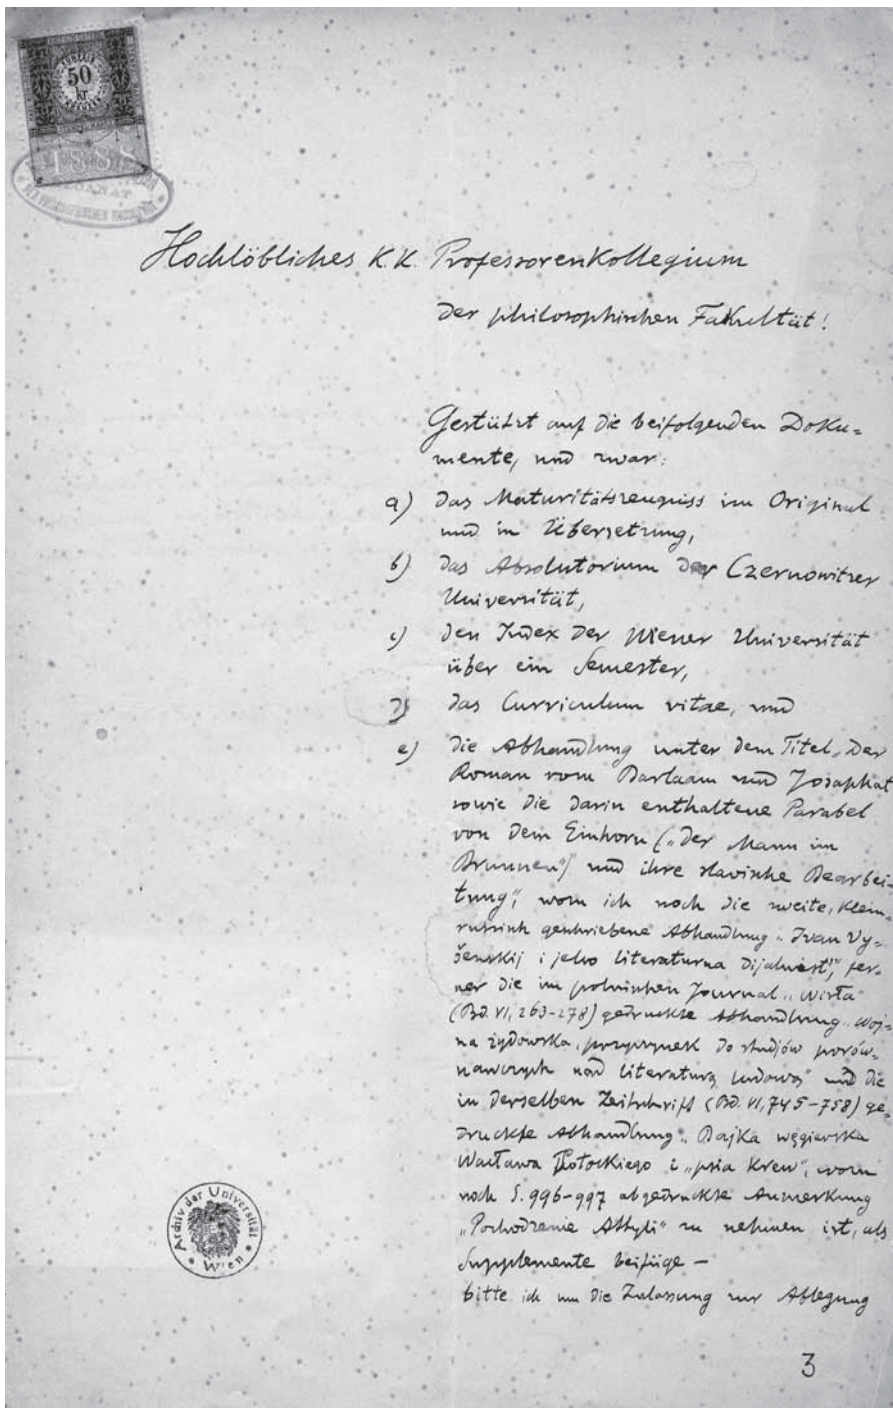 50
kr
1888
DEKANAT
Hochlöbliches K.K. Professorenkollegium
der philosophischen Fakultät!
Gestützt auf die beifolgenden Doku-
mente, und zwar:
a) das Maturitätszeugniss im Original
und in Übersetzung,
b) das Absolutorium der Czernowitzer
Universität,
c) den Index der Wiener Universität
über ein Semester,
d) das Curriculum vitae, und
e) die Abhandlung unter dem Titel „Der
Roman vom Barlaam und Josaphat
sowie die darin enthaltene Parabel
von dem Einhorn („Der Mann im
Brunnen“) und ihre slavische Bearbei-
tung“, worn ich noch die zweite, klein-
russisch geschriebene Abhandlung „Ivan Vy-
šenskij i jeho literaturna dijalnist'“, fer-
ner die im polnischen Journal „Wisła“
(Bd. VI, 263-278) gedruckte Abhandlung „Woj-
na żydowska, przyczynek do studjów porów-
nawczych nad literaturą ludową“ und die
in derselben Zeitschrift (Bd. VI, 745-758) ge-
druckte Abhandlung „Bajka węgierska
Wacława Potockiego i „psia krew“, worn
noch S. 996-997 abgedruckte Anmerkung
„Pochodzenie Attyli“ zu nehmen ist, als
Supplemente beifüge —
bitte ich um die Zulassung zur Ablegung
Archiv der Universität
Wien
3